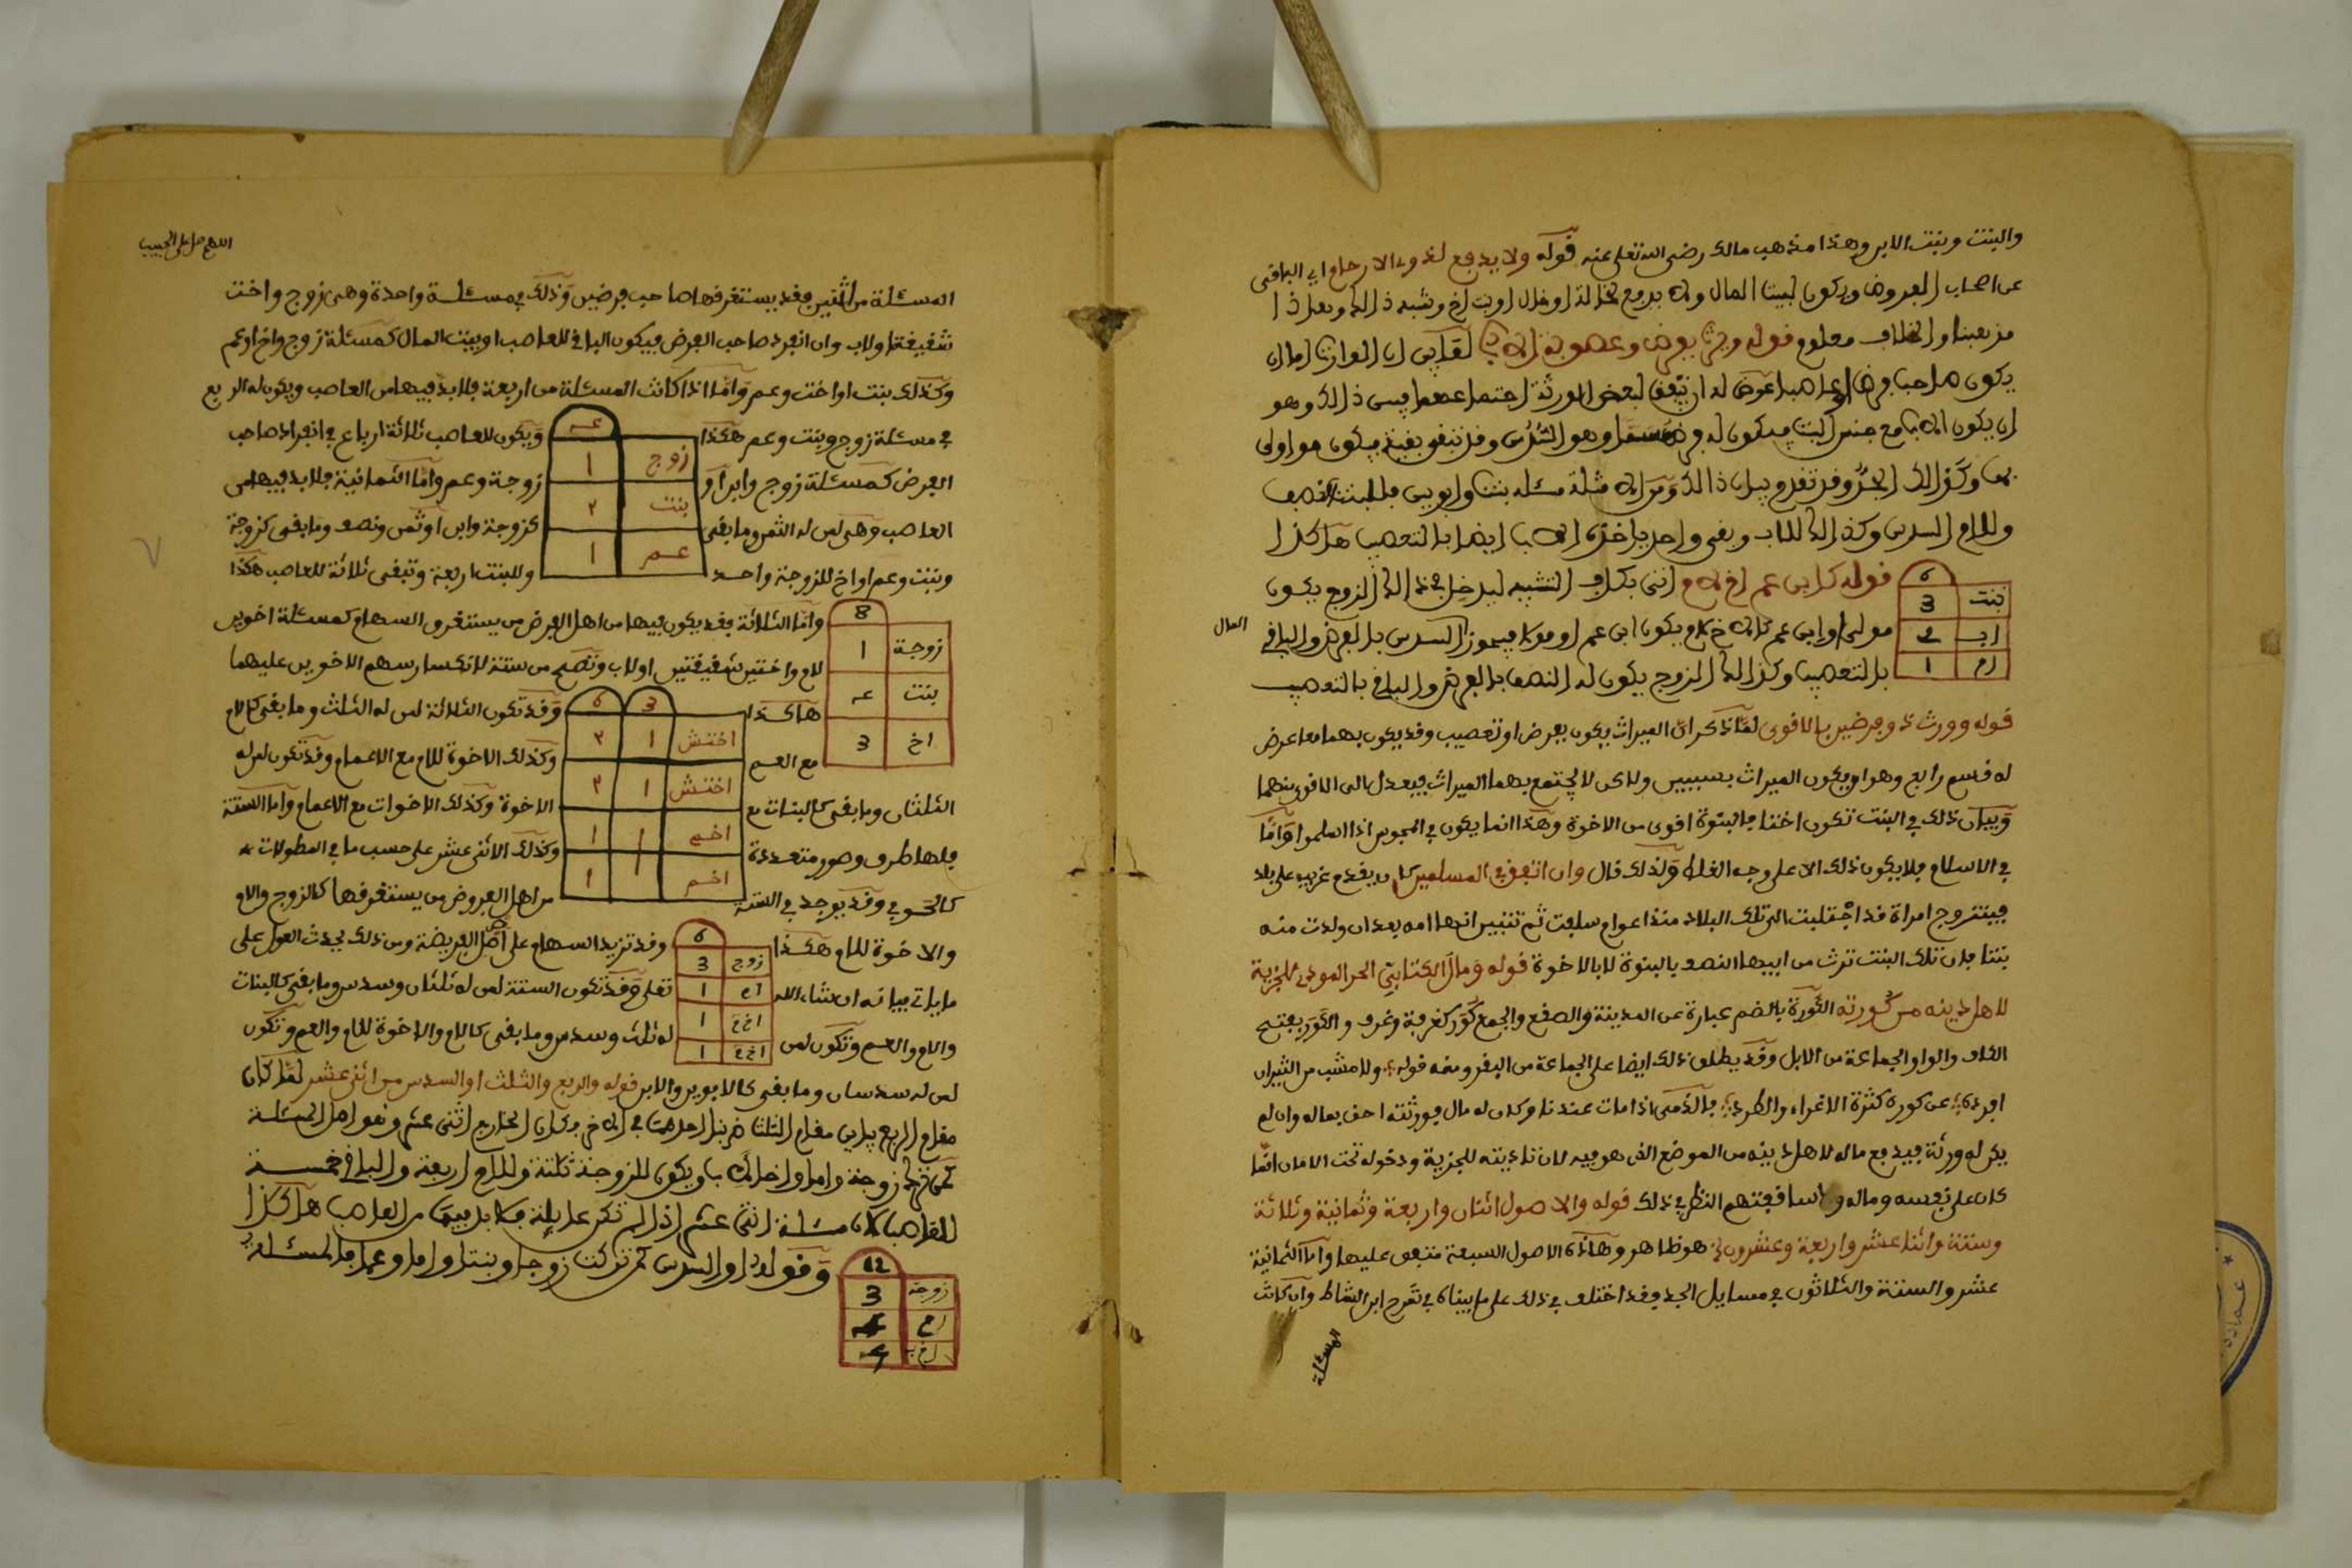 والبنت وبنت الابن وهذا مذهب مالك رضي الله تعلى عنه قوله ولا يدفع لذوي الارحام اي الباقي
عن اصحاب الفروض ويكون لبيت المال ولا يدفع لخالة او خال او بنت اخ وشبه ذالك وهذا
مذهبنا والخلاف معلوم قوله ويرث بفرض وعصوبة الاب
يكون صاحب فرض او عاصبا لبعض الورثة وهو
ان يكون الاب مع جنس البنت فيكون له وهو السدس وقد تبقى بقية فيكون هو اولى
بها وكذالك الجد وقد تقدم بيان ذالك مثله مسئلة بنت وابوين فللبنت النصف
وللام السدس وكذالك للاب وبقي واحد ياخذه الاب ايضا بالتعصيب هاكذا
6
بنت 3
اب 2
ام 1
قوله كابن عم اخ لام اتى بكاف التشبيه ليدخل في ذالك الزوج يكون
مولى او ابن عم والاخ للام يكون ابن عم او مولا فيحوز السدس بالفرض والباقي
المال
بالتعصيب وكذالك الزوج يكون له النصف بالفرض والباقي بالتعصيب
قوله وورث ذو فرضين بالاقوى لما ذكر ان الميراث يكون بفرض او تعصيب وقد يكون بهما معا عرض
له قسم رابع وهو ان يكون الميراث بسببين ولاكن لا يجتمع بهما الميراث فيعدل الى الاقوى منهما
وبيان ذلك في البنت تكون اختا فالبنوة اقوى من الاخوة وهذا انما يكون في المجوس اذا اسلموا واما
في الاسلام فلا يكون ذلك الا على وجه الغلط ولذلك قال وان اتفق في المسلمين كان يقدم غريب على بلد
فيتزوج امراة قد اجتلبت الى تلك البلاد منذ اعوام سلفت ثم تتبين انها امه بعد ان ولدت منه
بنتا فان تلك البنت ترث من ابيها النصف بالبنوة لا بالاخوة قوله ومال الكتابي الحر المودي للجزية
لاهل دينه من كورته الكورة بالضم عبارة عن المدينة والصقع والجمع كور كغرفة وغرف والكور بفتح
الكاف والواو الجماعة من الابل وقد يطلق ذلك ايضا على الجماعة من البقر ومنه قوله ولا مشب من الثيران
افرده عن كوره كثرة الاغراء والطرد فالذمي اذا مات عندنا وكان له مال فورثته احق بماله وان لم
يكن له ورثة فيدفع ماله لاهل دينه من الموضع الذي هو فيه لان تاديته للجزية ودخوله تحت الامان انما
كان على نفسه وماله النظر في ذلك قوله والاصول اثنان واربعة وثمانية وثلاثة
وستة واثنا عشر واربعة وعشرون هو ظاهر وهاذه الاصول السبعة متفق عليها واما الثمانية
عشر والستة والثلاثون في مسايل الجد فقد اختلف في ذلك على ما بيناه في شرح ابن الشاط وان كانت
المسئلة
اللهم صل على الحبيب
المسئلة من اثنين فقد يستغرقها صاحب فرضين وذلك في مسئلة واحدة وهي زوج واخت
شقيقة او لاب وان انفرد صاحب الفرض فيكون الباقي للعاصب او بيت المال كمسئلة زوج واخ او عم
وكذلك بنت او اخت وعم واما اذا كانت المسئلة من اربعة فلا بد فيها من العاصب ويكون له الربع
في مسئلة زوج وبنت وعم هكذا
زوج ١
بنت ٢
عم ١
ويكون للعاصب ثلاثة ارباع في انفراد صاحب
الفرض كمسئلة زوج وابن او
زوجة وعم واما الثمانية فلا بد فيها من
العاصب وهي لمن له الثمن وما بقي
كزوجة وابن او ثمن ونصف وما بقي كزوجة
وبنت وعم او اخ للزوجة واحد
وللبنت اربعة وتبقى ثلاثة للعاصب هكذا
8
زوجة 1
بنت
اخ 3
واما الثلاثة فقد يكون فيها من اهل الفرض من يستغرق السهام كمسئلة اخوين
لام واختين شقيقتين او لاب وتصح من ستة لانكسار سهم الاخوين عليهما
هاكذا
3 6
اختش ١ ٢
اختش ١ ٢
اخم ١ ١
اخم ١
وقد تكون الثلاثة لمن له الثلث وما بقي كالام
مع العم
وكذلك الاخوة للام مع الاعمام وقد تكون لمن له
الثلثان وما بقي كالبنات مع
الاخوة وكذلك الاخوات مع الاعمام واما الستة
فلها طرف وصور متعددة
وكذلك الاثنى عشر على حسب ما في المطولات
كالحوفي وقد يوجد في الستة
من اهل الفروض من يستغرقها كالزوج والام
والاخوة للام هكذا
6
زوج 3
ام 1
اخ 1
اخ 1
وقد تزيد السهام على اصل الفريضة ومن ذلك يحدث العول على
ما ياتي بيانه ان شاء الله
تعلى وقد تكون الستة لمن له ثلثان وسدس وما بقي كالبنات
والام والعم وتكون لمن
له ثلث وسدس وما بقي كالام والاخوة للام والعم وتكون
لمن له سدسان وما بقي كالابوين والابن قوله والربع والثلث او السدس من اثني عشر لما كان
مقام الربع يباين مقام الثلث ضربنا احدهما في الاخر فكان الخارج اثنى عشر وهو اصل المسئلة
كمن ترك زوجة واما واخا لاب ويكون للزوجة ثلثة وللام اربعة والباقي خمسة
للعاصب مسئلة اثنى عشر اذا لم تكن عايلة فلا بد فيها من العاصب هاكذا
12
زوجة 3
ام 4
اخ ب
وقوله او السدس كمن تركت زوجا وبنتا واما وعما فالمسئلة